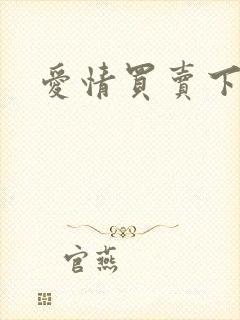 愛情買賣下
官燕